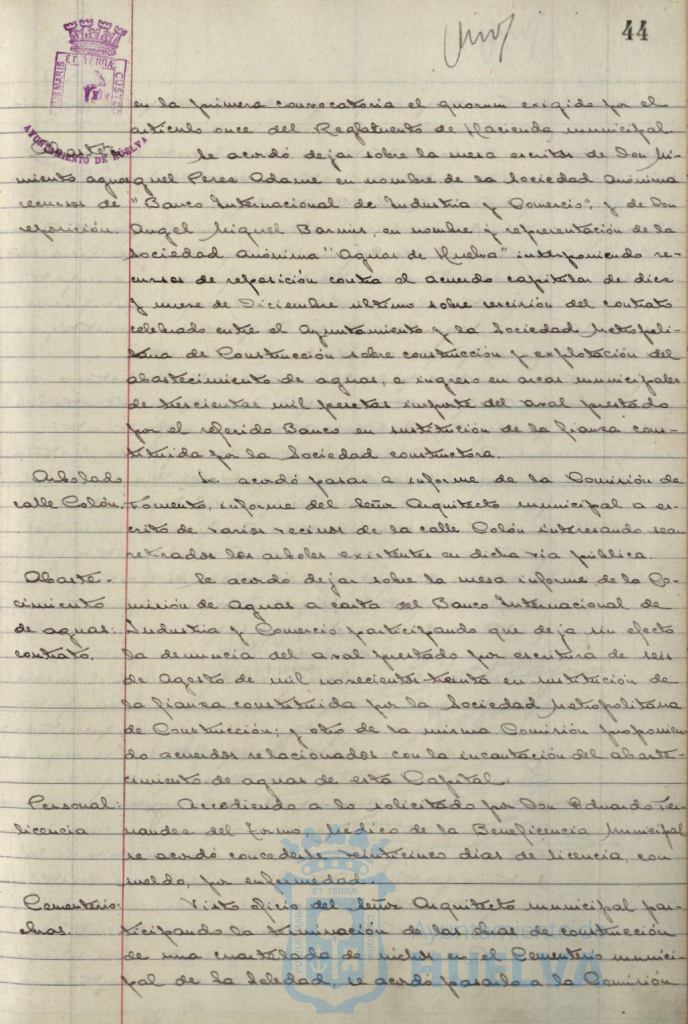 44
ET TERRÆ
US MARIS
CUSTOD
AYUNTAMIENTO DE HUELVA
en la primera convocatoria el quorum exigido por el
artículo once del Reglamento de Hacienda municipal
Abasteci-
Se acordó dejar sobre la mesa escritos de Don Mi-
miento aguas
guel Perez Adame en nombre de la Sociedad Anónima
recursos de
"Banco Internacional de Industria y Comercio"; y de Don
reposición.
Angel Miguel, en nombre y representación de la
Sociedad Anónima "Aguas de Huelva" interponiendo re-
cursos de reposición contra el acuerdo capitular de diez
y nueve de Diciembre último sobre rescisión del contrato
celebrado entre el Ayuntamiento y la Sociedad Metropoli-
tana de Construcción sobre construcción y explotación del
abastecimiento de aguas, e ingreso en arcas municipales
de trescientas mil pesetas importe del aval prestado
por el referido Banco en sustitución de la fianza cons-
tituida por la Sociedad constructora.
Arbolado
Se acordó pasar a informe de la Comisión de
calle Colón.
Fomento, informe del Señor Arquitecto municipal a es-
crito de varios vecinos de la calle Colón interesando sean
retirados los arboles existentes en dicha via pública.
Abaste-
Se acordó dejar sobre la mesa informe de la Co-
cimiento
misión de Aguas a carta del Banco Internacional de
de aguas:
Industria y Comercio participando que deja sin efecto
contrato.
la denuncia del aval prestado por escritura de seis
de Agosto de mil novecientos treinta en sustitución de
la fianza constituida por la Sociedad Metropolitana
de Construcción; y otro de la misma Comisión proponien-
do acuerdos relacionados con la incautación del abaste-
cimiento de aguas de esta Capital.
Personal:
Accediendo a lo solicitado por Don Eduardo Fer-
licencia
nandez del Torno, Médico de la Beneficencia Municipal
se acordó concederle veinticinco dias de licencia, con
sueldo, por enfermedad.
Cementerio:
Visto oficio del Señor Arquitecto municipal par-
obras.
ticipando la terminación de las obras de construcción
de una cuartelada de nichos en el Cementerio munici-
pal de la Soledad, se acordó pasarlo a la Comisión
ET TERRÆ
PORTUS MARIS
CUSTODIA
Ayuntamiento de
HUELVA